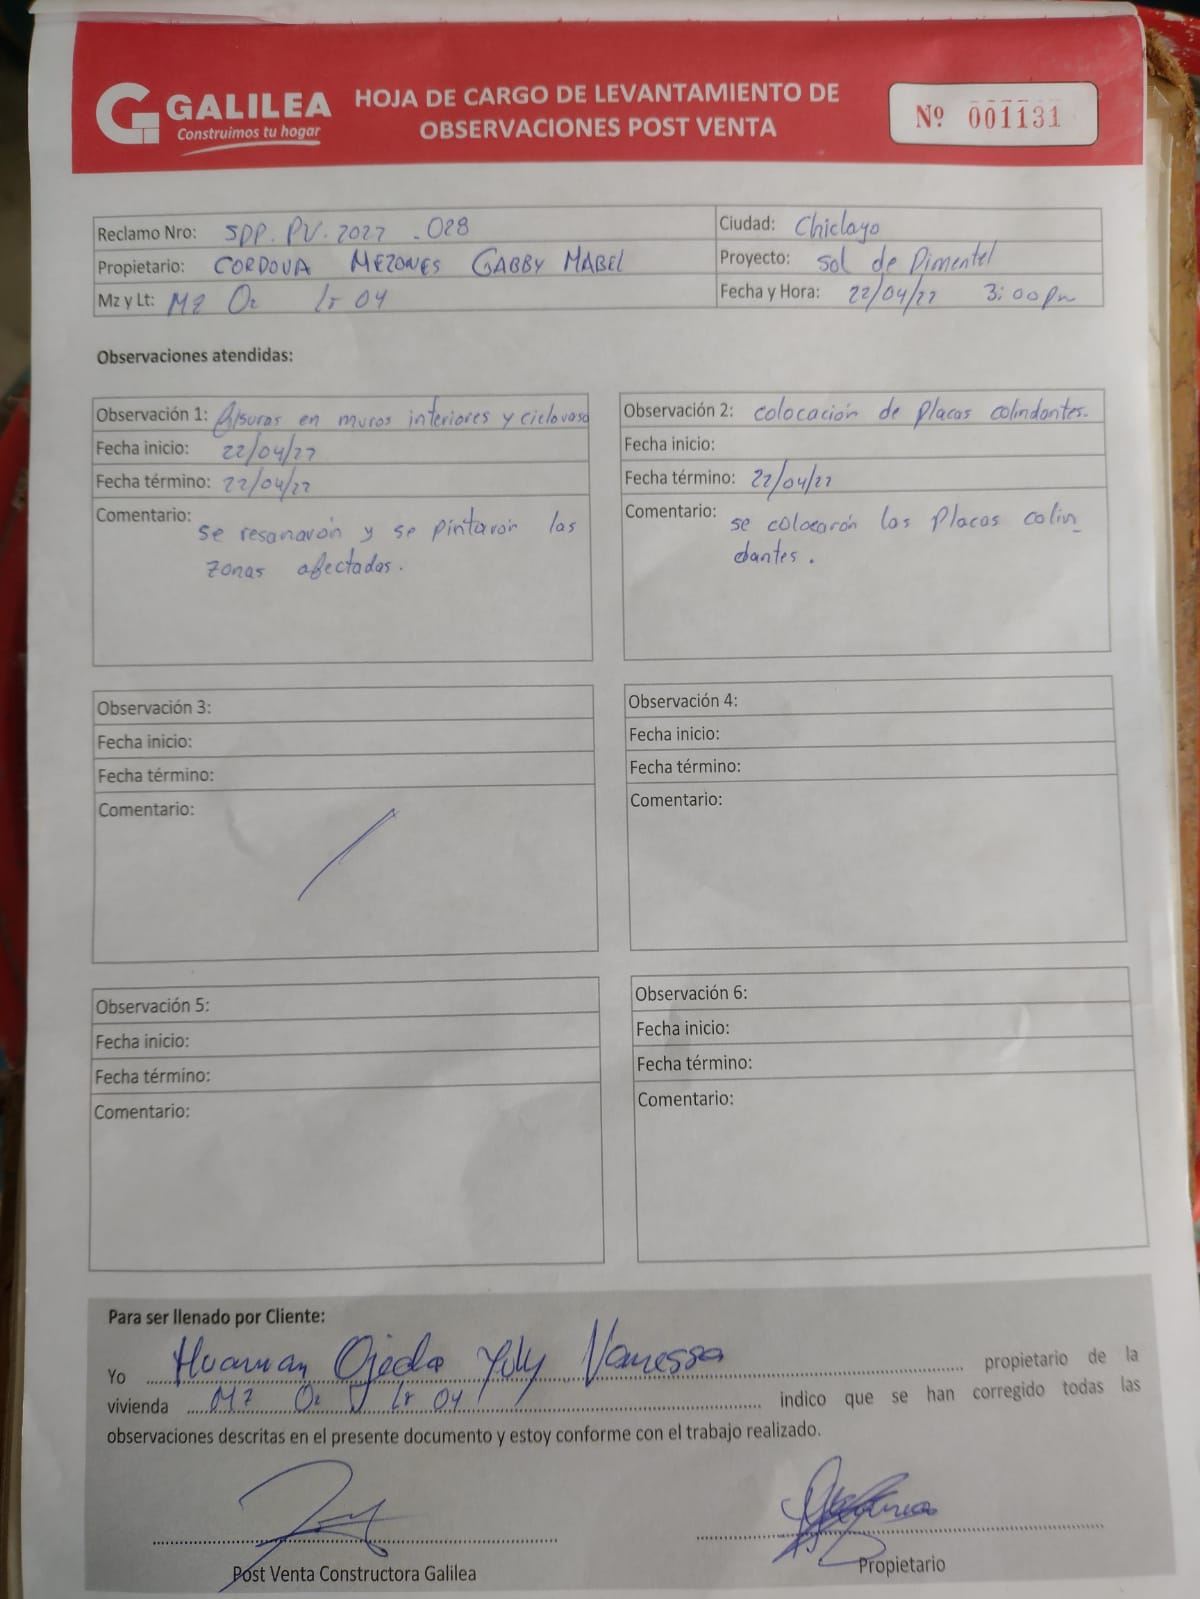 GALILEA
Construimos tu hogar
HOJA DE CARGO DE LEVANTAMIENTO DE
OBSERVACIONES POST VENTA
Nº 001131
Reclamo Nro: SPP. PV. 2022 . 028
Ciudad: Chiclayo
Propietario: CORDOVA MEZONES GABBY MABEL
Proyecto: Sol de Pimentel
Mz y Lt: MZ O2 Lt 04
Fecha y Hora: 22/04/22 3:00 Pm
Observaciones atendidas:
Observación 1: fisuras en muros interiores y cieloraso
Fecha inicio: 22/04/22
Fecha término: 22/04/22
Comentario: se resanarón y se pintarón las
zonas afectadas.
Observación 2: colocación de Placas colindantes.
Fecha inicio:
Fecha término: 22/04/22
Comentario: se colocarón las Placas colin_
dantes.
Observación 3:
Fecha inicio:
Fecha término:
Comentario:
Observación 4:
Fecha inicio:
Fecha término:
Comentario:
Observación 5:
Fecha inicio:
Fecha término:
Comentario:
Observación 6:
Fecha inicio:
Fecha término:
Comentario:
Para ser llenado por Cliente:
Yo Huaman Ojeda Yuly Vanessa propietario de la
vivienda MZ O2 Lt 04 indico que se han corregido todas las
observaciones descritas en el presente documento y estoy conforme con el trabajo realizado.
Post Venta Constructora Galilea
Propietario